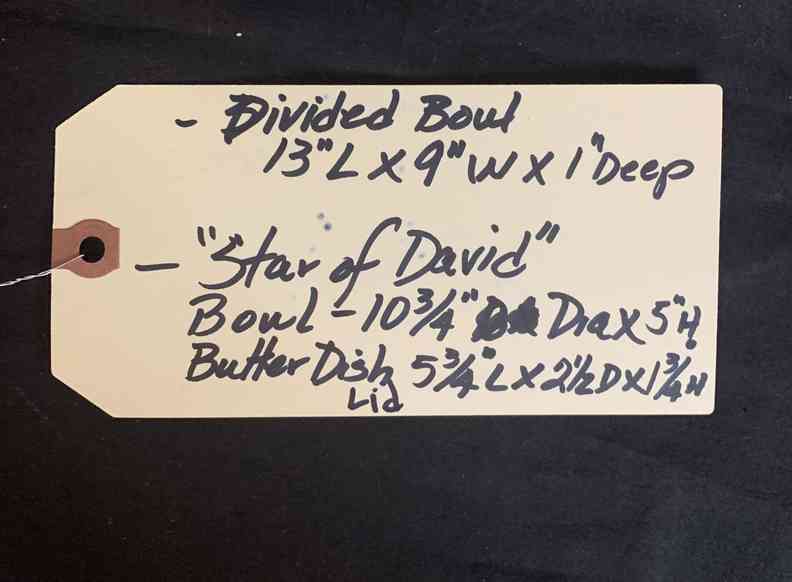 - Divided Bowl
13"L X 9" W X 1" Deep
- "Star of David"
Bowl - 10 3/4" Dia X 5"H
Butter Dish 5 3/4" L X 2 1/2 D X 1 3/4" H
Lid